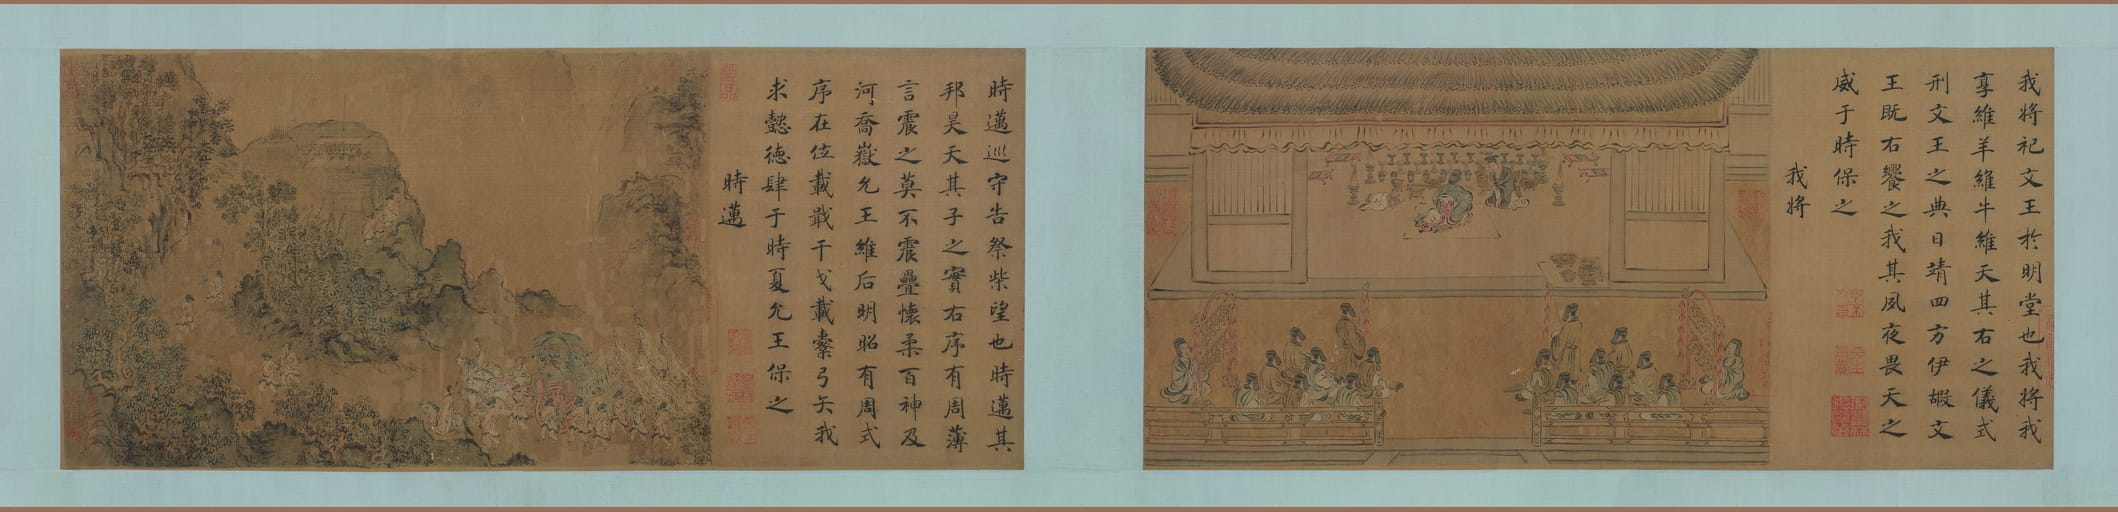 我將祀文王於明堂也我將我
享維羊維牛維天其右之儀式
刑文王之典日靖四方伊嘏文
王既右饗之我其夙夜畏天之
威于時保之
我將
時邁巡守告祭柴望也時邁其
邦昊天其子之實右序有周薄
言震之莫不震疊懷柔百神及
河喬嶽允王維后明昭有周式
序在位載戢干戈載櫜弓矢我
求懿德肆于時夏允王保之
時邁